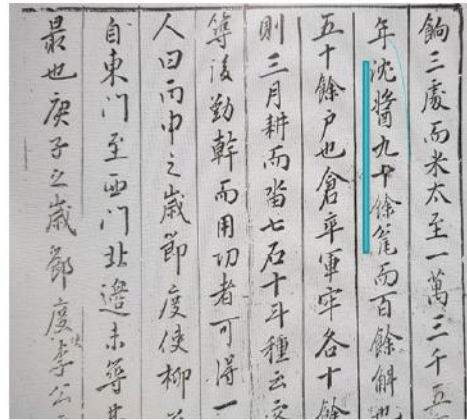 餉三處而米太至一萬三千五
年沈醬九十餘瓮而百餘斛也
五十餘戶也倉卒軍牢各十餘
則三月耕而畓七石十斗種云
築後勤幹而用功者可得一
人曰丙申之歲節度使柳
自東門至西門北邊未築
最也庚子之歲節度使李公